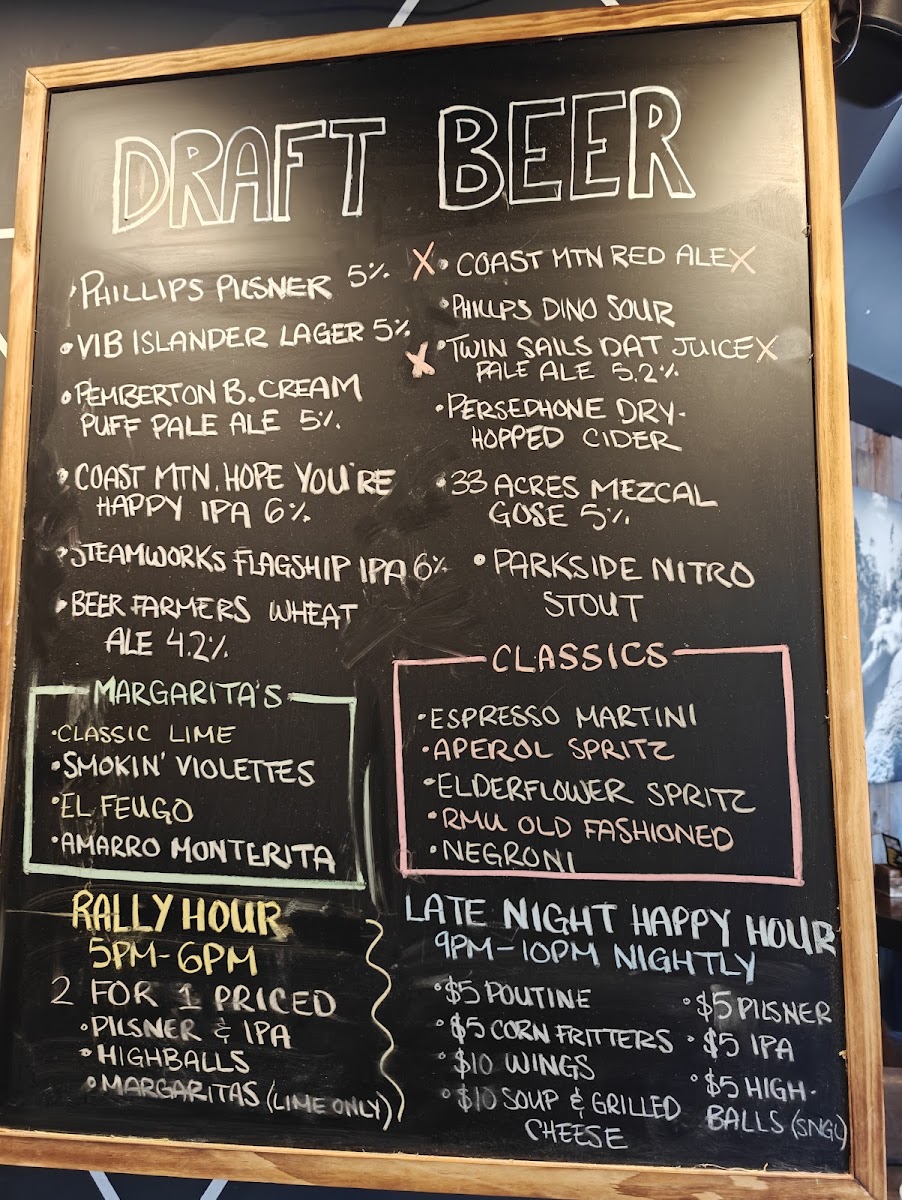 DRAFT BEER
•PHILLIPS PILSNER 5%
•VIB ISLANDER LAGER 5%
•PEMBERTON B. CREAM
PUFF PALE ALE 5%
•COAST MTN. HOPE YOU'RE
HAPPY IPA 6%
•STEAMWORKS FLAGSHIP IPA 6%
•BEER FARMERS WHEAT
ALE 4.2%
X•COAST MTN RED ALE X
•PHILLIPS DINO SOUR
X•TWIN SAILS DAT JUICE X
PALE ALE 5.2%
•PERSEPHONE DRY-
HOPPED CIDER
•33 ACRES MEZCAL
GOSE 5%
•PARKSIDE NITRO
STOUT
MARGARITA'S
•CLASSIC LIME
•SMOKIN' VIOLETTES
•EL FEUGO
•AMARRO MONTERITA
CLASSICS
•ESPRESSO MARTINI
•APEROL SPRITZ
•ELDERFLOWER SPRITZ
•RMU OLD FASHIONED
•NEGRONI
RALLY HOUR
5PM-6PM
2 FOR 1 PRICED
•PILSNER & IPA
•HIGHBALLS
•MARGARITAS (LIME ONLY)
LATE NIGHT HAPPY HOUR
9PM-10PM NIGHTLY
•$5 POUTINE
•$5 CORN FRITTERS
•$10 WINGS
•$10 SOUP & GRILLED
CHEESE
•$5 PILSNER
•$5 IPA
•$5 HIGH-
BALLS (SNGL)